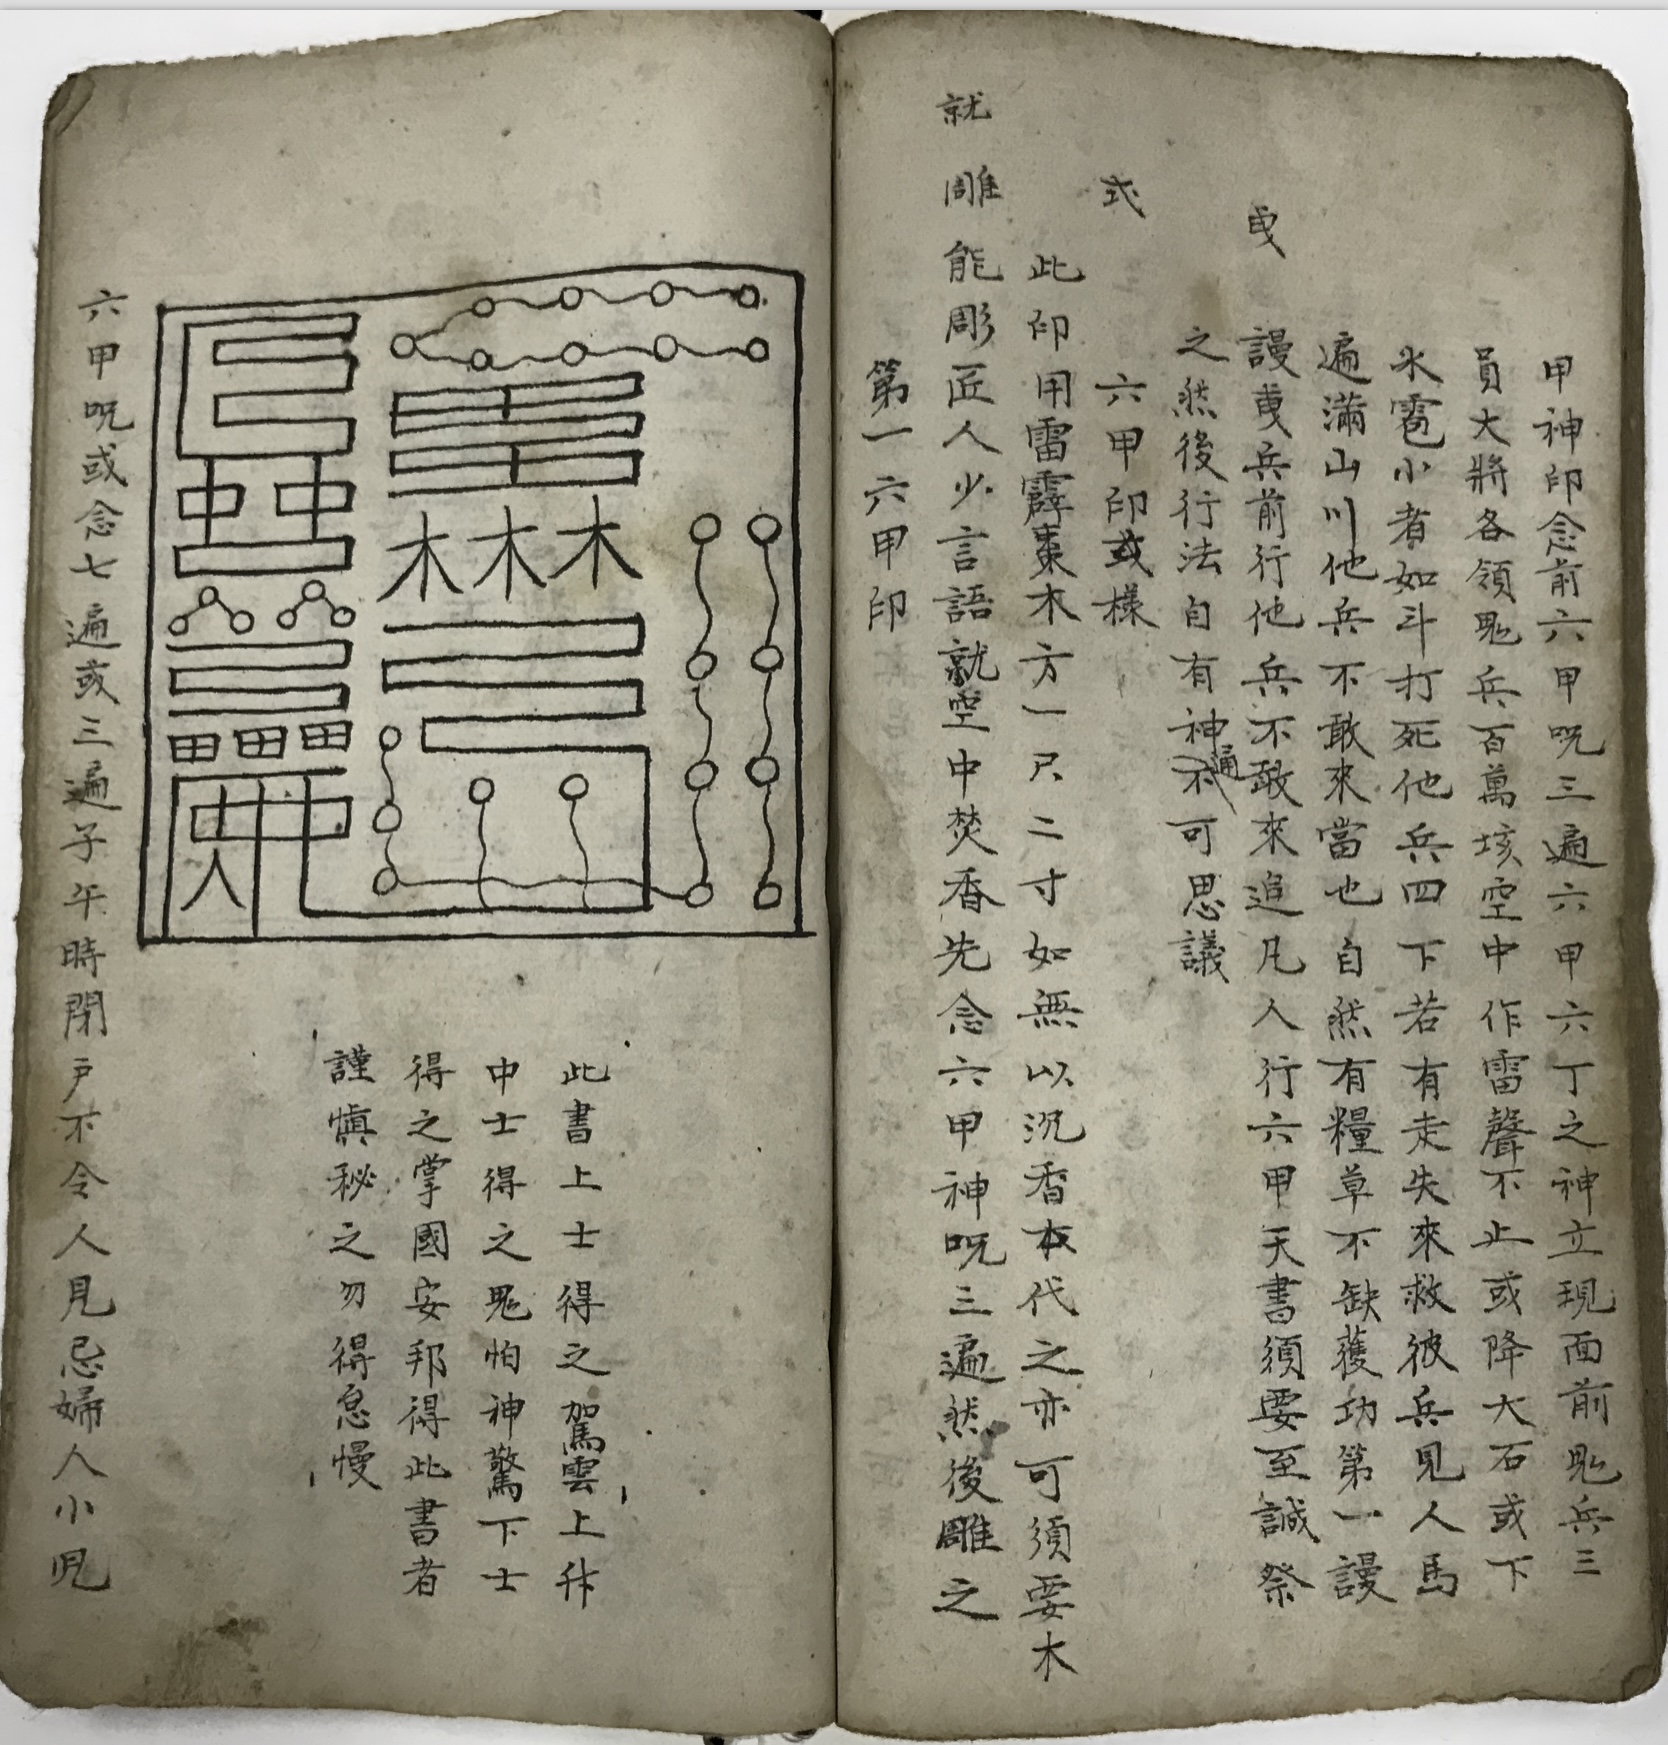 甲神印念前六甲呪三遍六甲六丁之神立現面前鬼兵三
員大將各領鬼兵百萬垓空中作雷聲不止或降大石或下
氷雹小者如斗打死他兵四下若有走失來救彼兵見人馬
遍滿山川他兵不敢來當也自然有糧草不缺獲功第一謾
謾曳兵前行他兵不敢來追凡人行六甲天書須要至誠祭
曳
之然後行法自有神通不可思議
六甲印或樣
式
此印用雷霹棗木方一尺二寸如無以沉香本代之亦可須要木
雕能彫匠人少言語就空中焚香先念六甲神呪三遍然後雕之
就
第一六甲印
木木木
田田田
人
此書上士得之駕雲上升
中士得之鬼怕神驚下士
得之掌國安邦得此書者
謹慎秘之勿得怠慢
六甲呪或念七遍或三遍子午時閉戶不令人見忌婦人小兒